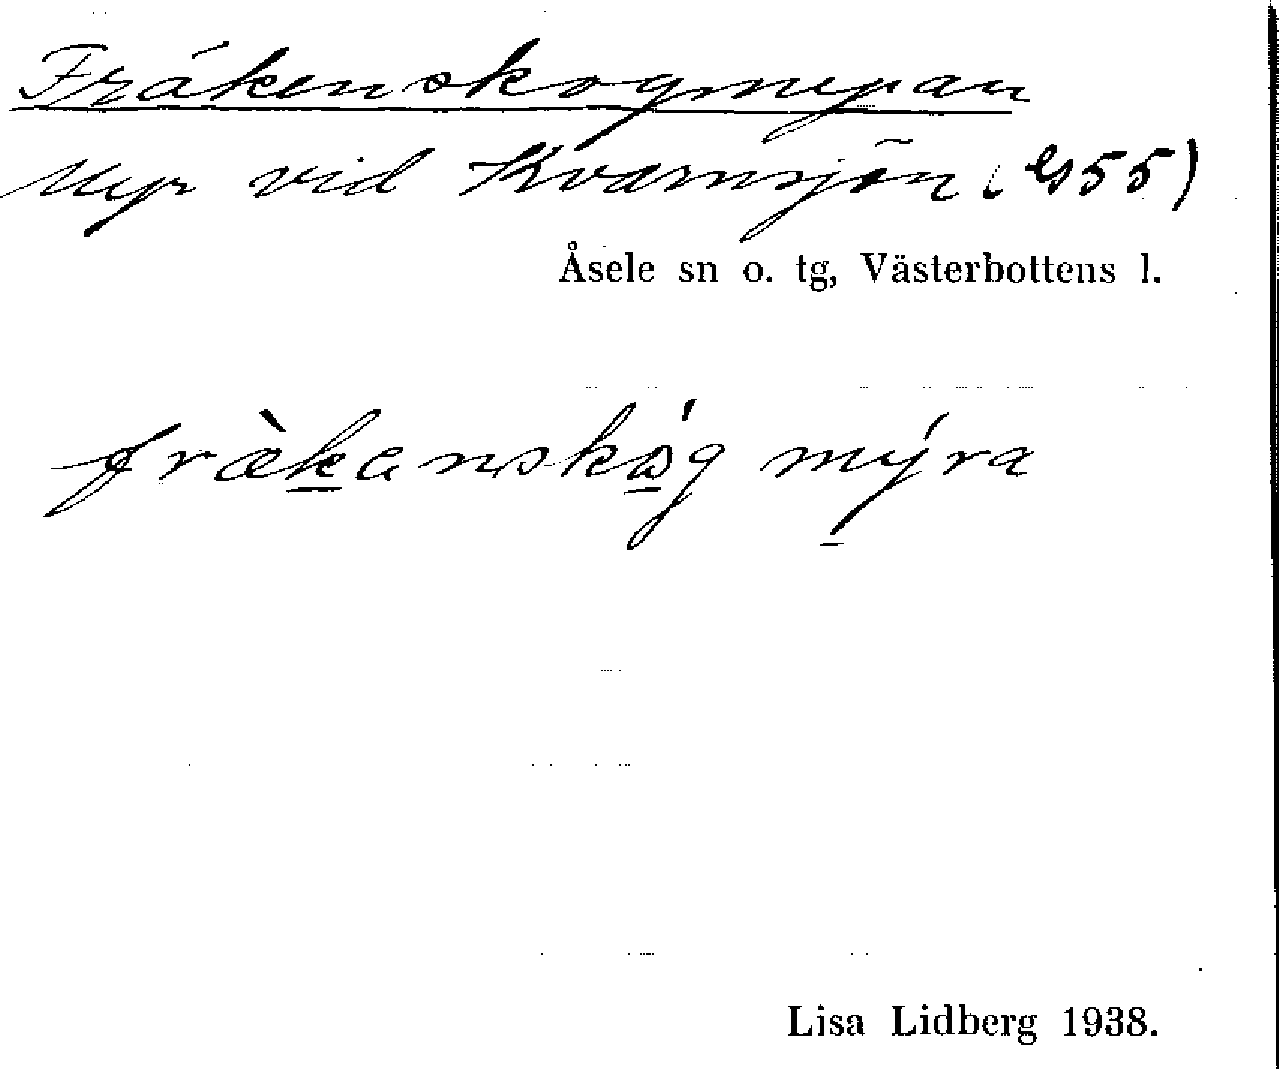 Fräkenskogmyran
Myr vid Kvarnsjön (G55)
Åsele sn o. tg, Västerbottens l.
fræ̀kanskóg mýra
Lisa Lidberg 1938.